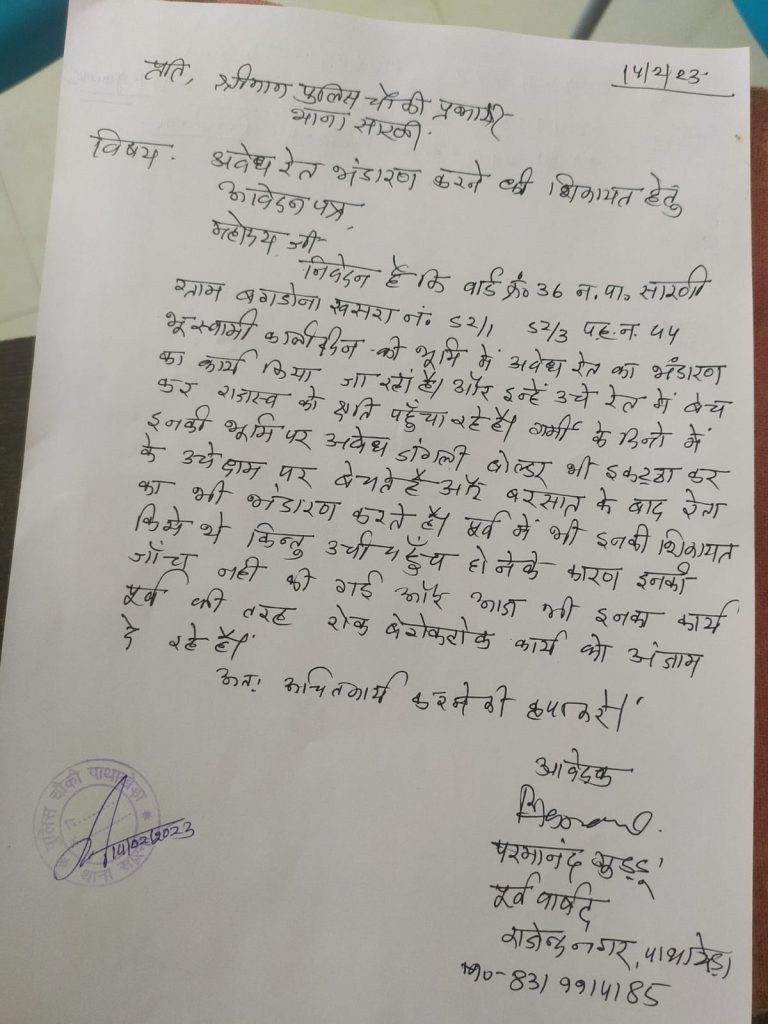 14/2/23
प्रति, श्रीमान पुलिस चौकी प्रभारी
थाना सारणी.
विषय. अवैध रेत भंडारण करने की शिकायत हेतु
आवेदन पत्र,
महोदय जी
निवेदन है कि वार्ड क्रं० 36 न.पा. सारणी
ग्राम बगडोना खसरा नं० 52/1 52/3 पह.न. 44
भूस्वामी की भूमि में अवैध रेत का भंडारण
का कार्य किया जा रहा है। और इन्हें उचे रेत में बेच
कर राजस्व को क्षति पहुँचा रहे है। गर्मी के दिनो में
इनकी भूमि पर अवैध बोल्डर भी इकट्ठा कर
के उचे दाम पर बेचते है और बरसात के बाद रेता
का भी भंडारण करते है। पूर्व में भी इनकी शिकायत
किये थे किन्तु उची पहुँच होने के कारण इनकी
जाँच नही की गई और आज भी इनका कार्य
पूर्व की तरह रोक बेरोकटोक कार्य को अंजाम
दे रहे है।
अतः उचित कार्य करने की कृपा करे।
आवेदक
परमानंद
पूर्व पार्षद
राजेन्द्र नगर, पाथाखेड़ा
मो०- 8319914185
पुलिस चौकी पाथाखेड़ा
दि.
14/02/2023
थाना